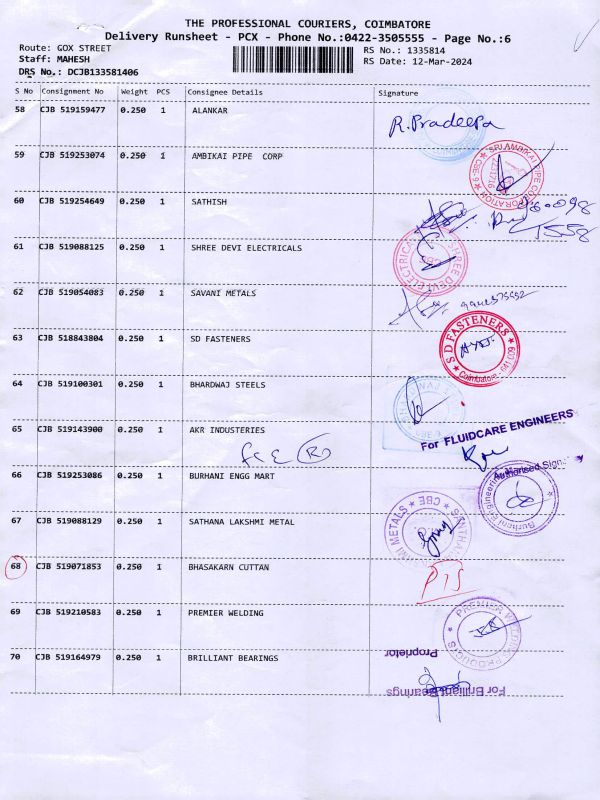 THE PROFESSIONAL COURIERS, COIMBATORE
Delivery Runsheet - PCX - Phone No.:0422-3505555 - Page No.:6
Route: GOX STREET
RS No.: 1335814
Staff: MAHESH
RS Date: 12-Mar-2024
DRS No.: DCJB133581406
S No Consignment No Weight PCS Consignee Details Signature
58 CJB 519159477 0.250 1 ALANKAR
R. Pradeepa
59 CJB 519253074 0.250 1 AMBIKAI PIPE CORP
SRI AMBIKAI PIPE CORPORATION ★ CBE-9 ★
60 CJB 519254649 0.250 1 SATHISH
61 CJB 519088125 0.250 1 SHREE DEVI ELECTRICALS
SHREE DEVI ELECTRICAL
CBE
62 CJB 519054083 0.250 1 SAVANI METALS
63 CJB 518843804 0.250 1 SD FASTENERS
★ S D FASTENERS ★
Coimbatore - 641 009
64 CJB 519100301 0.250 1 BHARDWAJ STEELS
65 CJB 519143900 0.250 1 AKR INDUSTERIES
For FLUIDCARE ENGINEERS
Authorised Sign.
66 CJB 519253086 0.250 1 BURHANI ENGG MART
Burhani Engineering
67 CJB 519088129 0.250 1 SATHANA LAKSHMI METAL
METALS ★ CBE ★
68 CJB 519071853 0.250 1 BHASAKARN CUTTAN
69 CJB 519210583 0.250 1 PREMIER WELDING
PREMIER WELDING PRODUCTS ★
70 CJB 519164979 0.250 1 BRILLIANT BEARINGS
Proprietor
For Brilliant Bearings